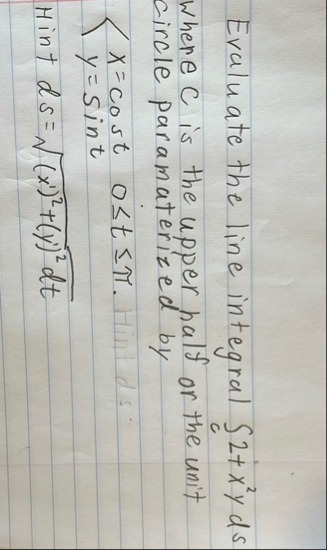 Evaluate the line integral ∫_C 2+x²y ds
where C is the upper half or the unit
circle paramaterized by
{ x=cost 0≤t≤π.
y=sint
Hint ds=√(x')²+(y')² dt